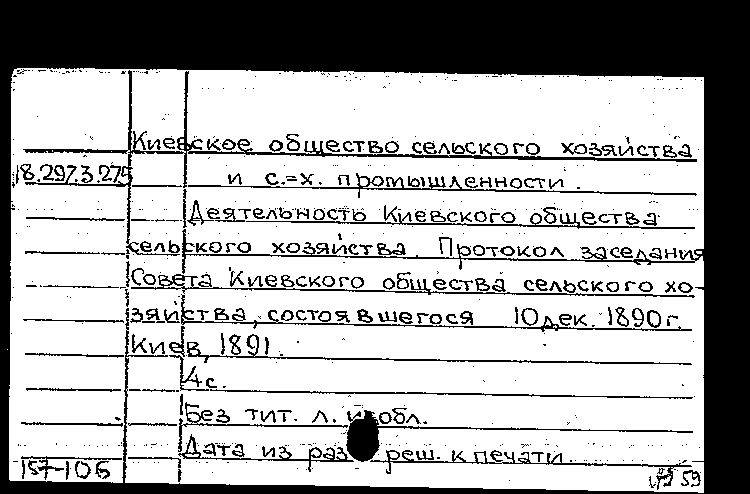 Киевское общество сельского хозяйства
18.297.3.275 и с.=х. промышленности.
Деятельность Киевского общества
сельского хозяйства. Протокол заседания
Совета Киевского общества сельского хо-
зяйства, состоявшегося 10 дек. 1890 г.
Киев, 1891.
4 с.
Без тит. л. и обл.
Дата из разреш. к печати.
157-106
59